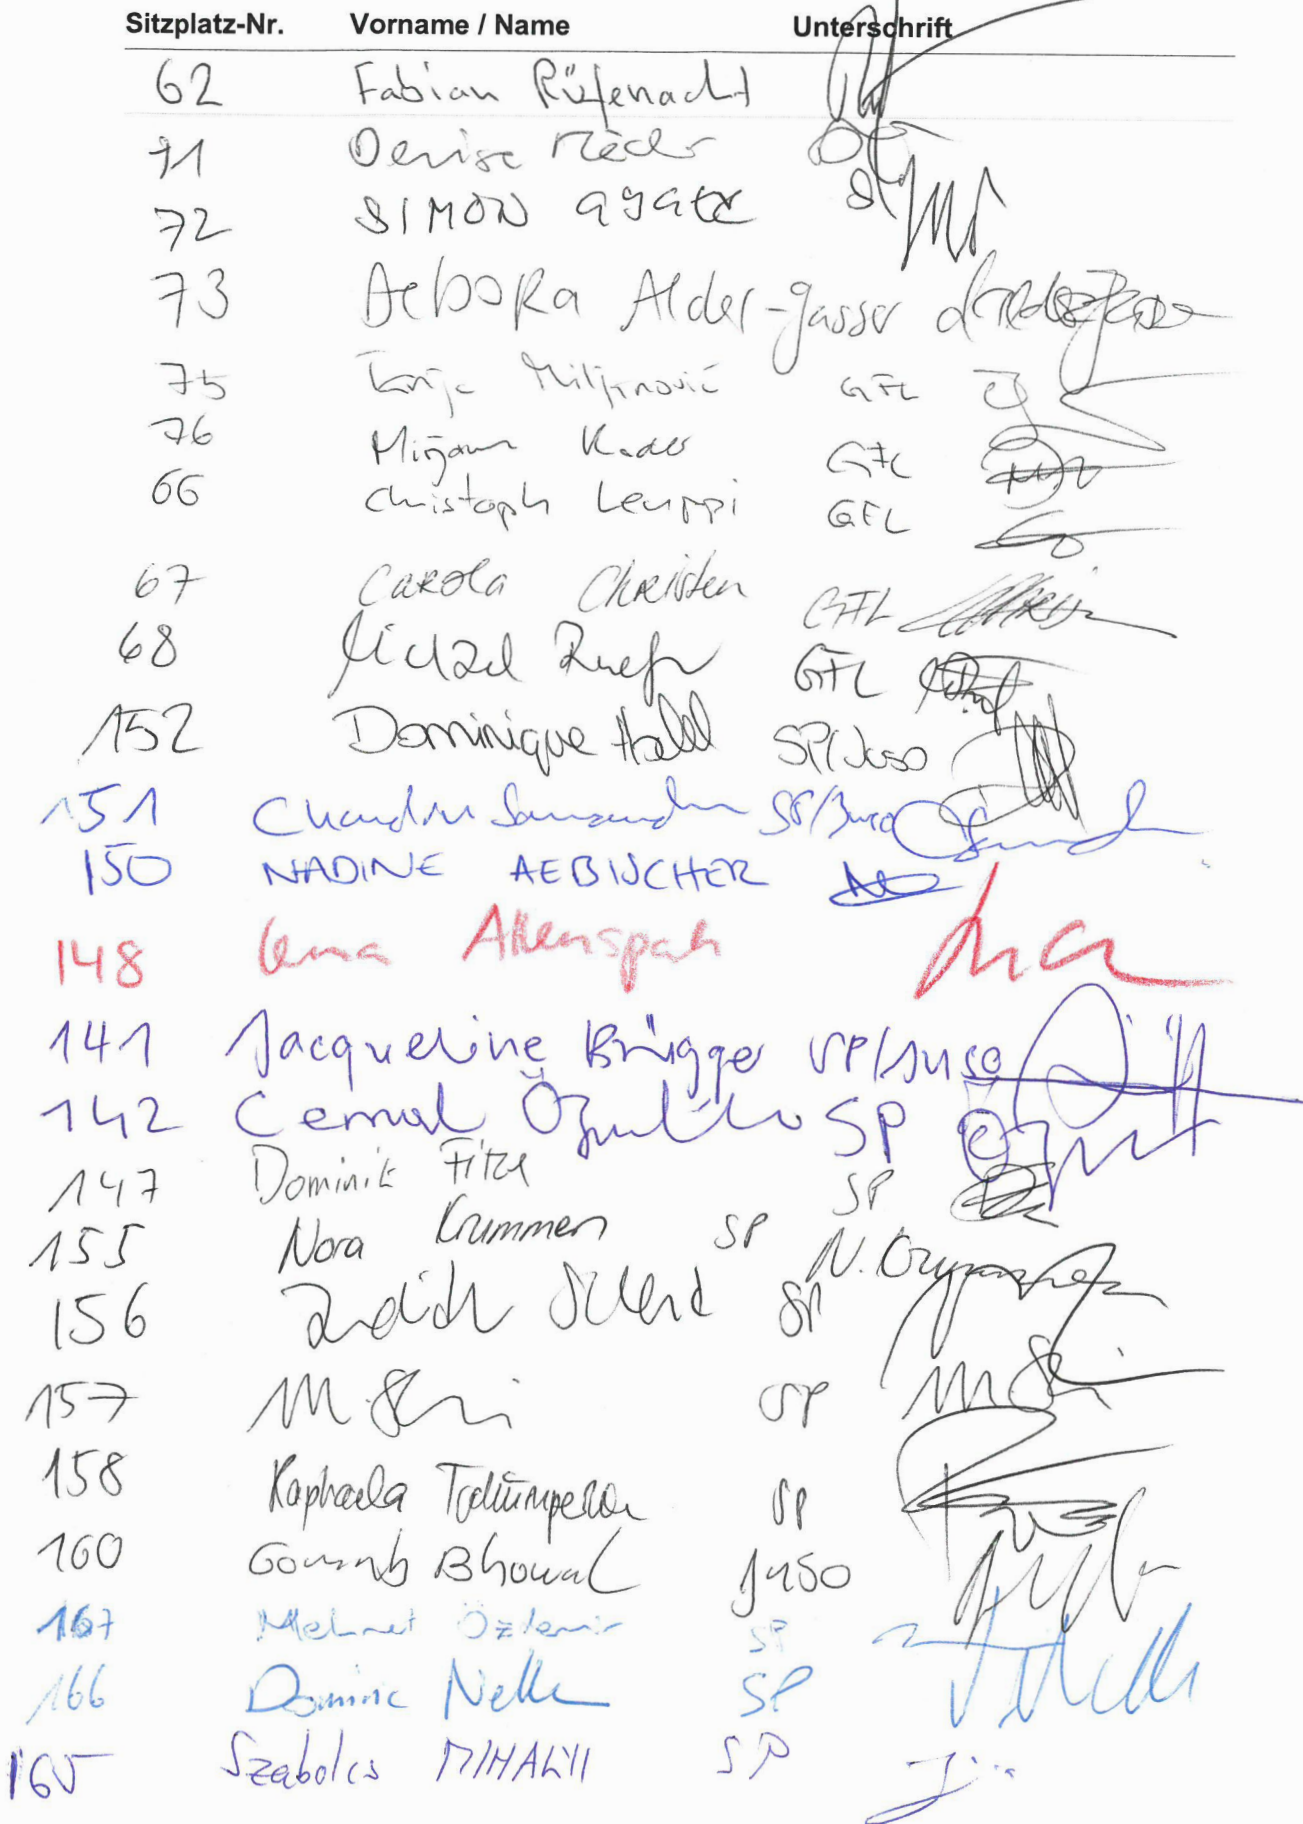 Sitzplatz-Nr. Vorname / Name Unterschrift
62 Fabian Rüfenacht
71 Denise Mäder
72 SIMON
73 Debora Alder-Gasser
75 Tanja Miljanović GFL
76 Mirjam GFL
66 Christoph Leuppi GFL
67 Carola Christen GFL
68 Michael Ruefer GFL
152 Dominique SP/Juso
151 SP/Juso
150 NADINE AEBISCHER
148 Lena Allenspach
141 Jacqueline Brügger SP/Juso
142 Cemal SP
147 Dominik Fitze SP
155 Nora Krummen SP N. Krummen
156 Judith SP
157 SP
158 Raphaela SP
160 Bhowal Juso
167 Mehmet Özdemir SP
166 Dominic Nellen SP
165 Szabolcs MIHALYI SP